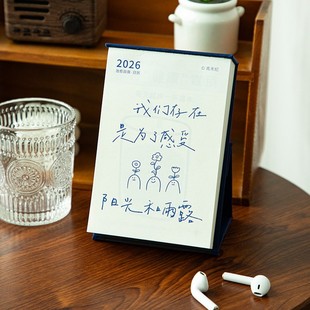 2026
我们存在
是为了感受
阳光和雨露